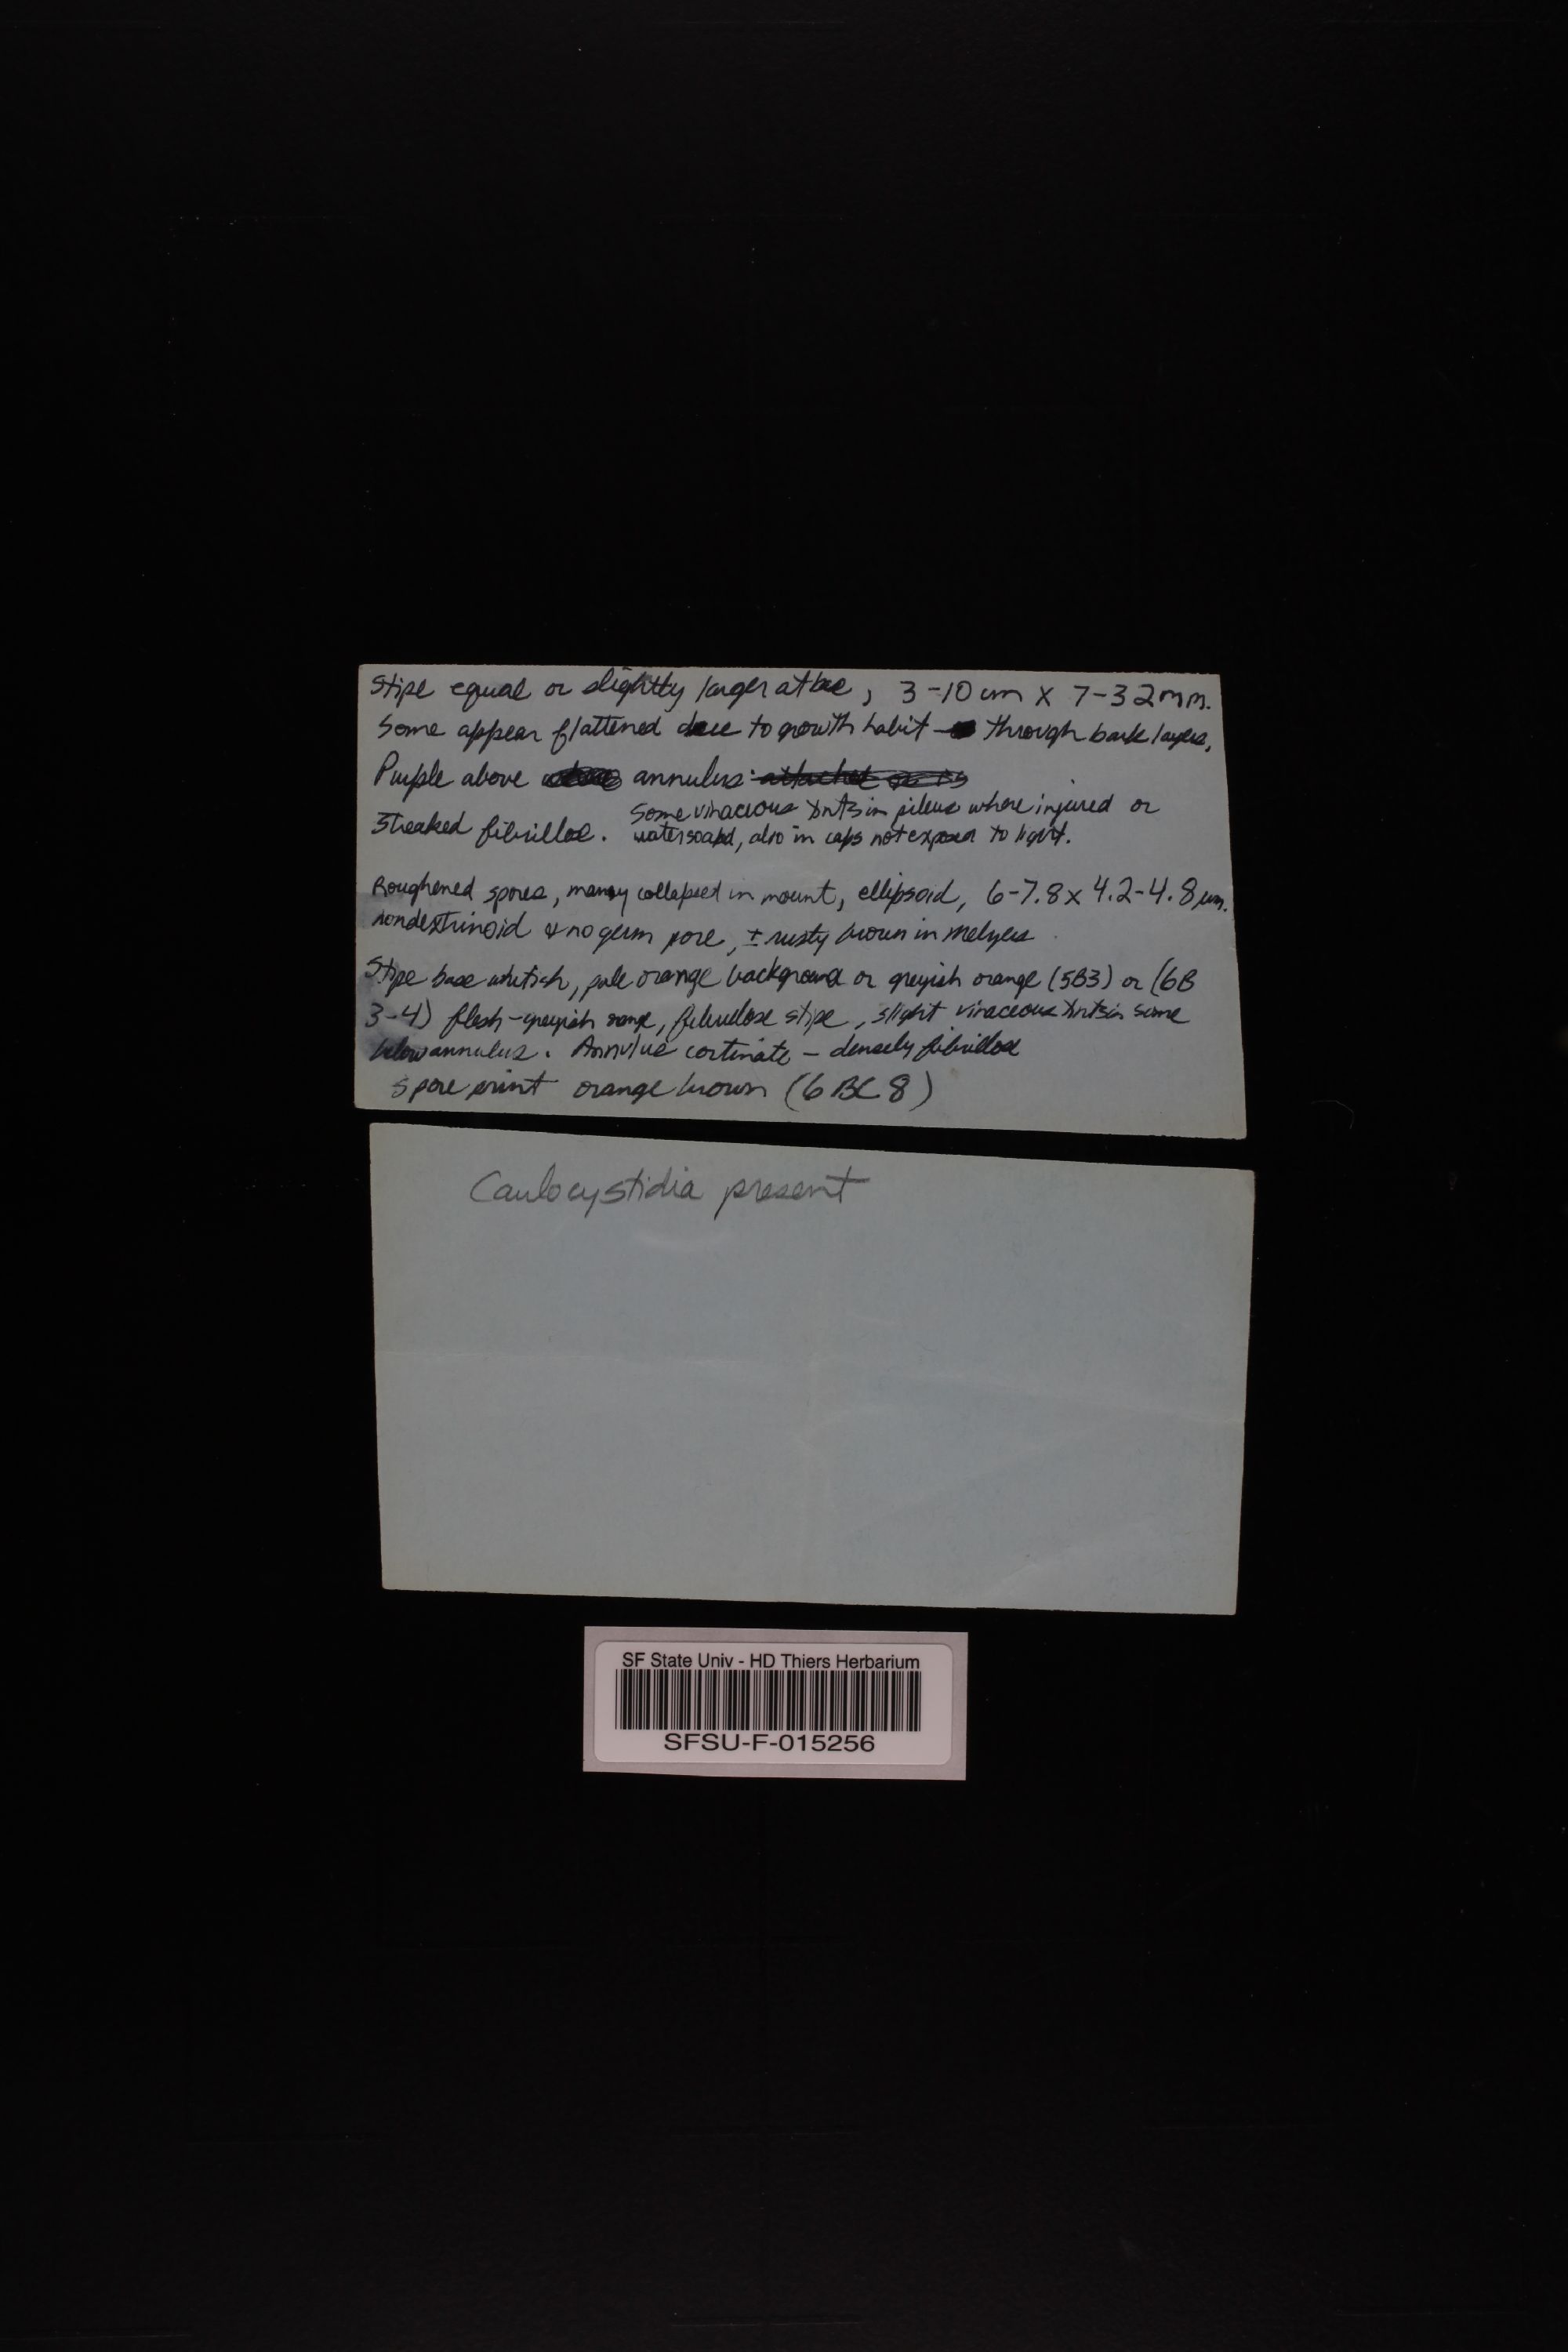 Stipe equal or slightly larger at base, 3-10 cm x 7-32 mm.
Some appear flattened due to growth habit - through bark layers,
Purple above annulus:
Streaked fibrillose. Some vinaceous tints in pileus where injured or
watersoaked, also in caps not exposed to light.
Roughened spores, many collapsed in mount, ellipsoid, 6-7.8 x 4.2-4.8 µm.
nondextrinoid & no germ pore, ± rusty brown in Melzers
Stipe base whitish, pale orange background or greyish orange (5B3) or (6B
3-4) flesh-greyish orange, fibrillose stipe, slight vinaceous tints in some
below annulus. Annulus cortinate - densely fibrillose
Spore print orange brown (6BC8)
Caulocystidia present
SF State Univ - HD Thiers Herbarium
SFSU-F-015256